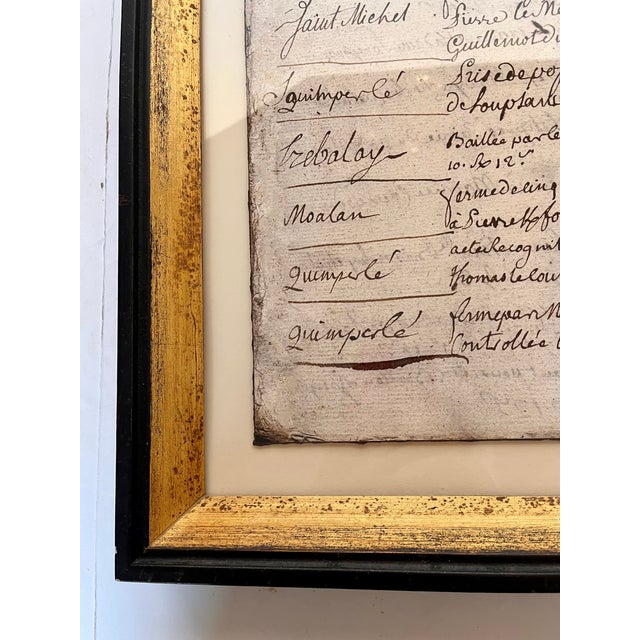 Saint Michel
Pierre Le Me
Guillemot du
Squimperlé
Prise de pos
de Loupsant
Trebalay
Baillée par le
10. st 12.
Moalan
ferme de cinq
à Pierre
acte Recognit
Quimperlé
Thomas le Cou
Quimperlé
ferme par M
Controllée